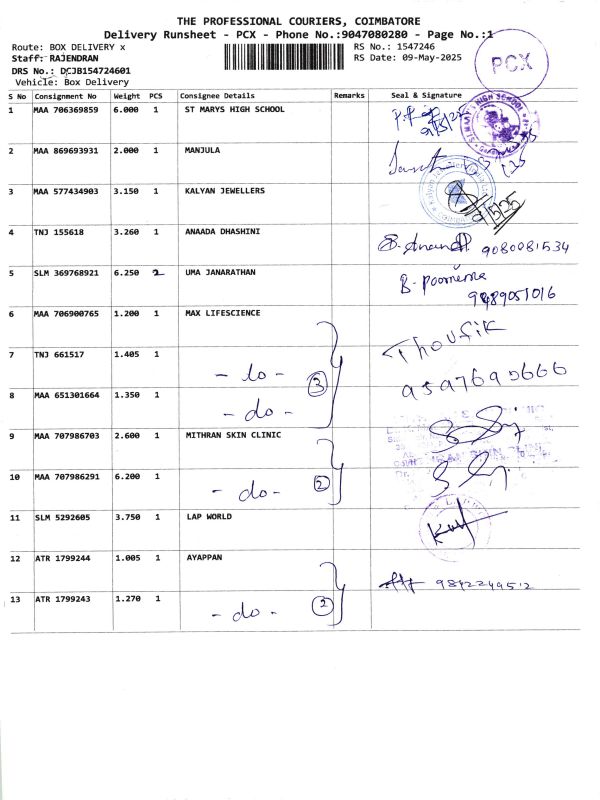 THE PROFESSIONAL COURIERS, COIMBATORE
Delivery Runsheet - PCX - Phone No.:9047080280 - Page No.:1
Route: BOX DELIVERY x
Staff: RAJENDRAN
DRS No.: DCJB154724601
Vehicle: Box Delivery
RS No.: 1547246
RS Date: 09-May-2025
PCX
S No Consignment No Weight PCS Consignee Details Remarks Seal & Signature
1 MAA 706369859 6.000 1 ST MARYS HIGH SCHOOL
2 MAA 869693931 2.000 1 MANJULA
3 MAA 577434903 3.150 1 KALYAN JEWELLERS
4 TNJ 155618 3.260 1 ANAADA DHASHINI 9080081534
5 SLM 369768921 6.250 2 UMA JANARATHAN B. Poornima
9489051016
6 MAA 706900765 1.200 1 MAX LIFESCIENCE Thoufik
7 TNJ 661517 1.405 1 - do - 3
8 MAA 651301664 1.350 1 - do -
9 MAA 707986703 2.600 1 MITHRAN SKIN CLINIC
10 MAA 707986291 6.200 1 - do - 2
11 SLM 5292605 3.750 1 LAP WORLD
12 ATR 1799244 1.005 1 AYAPPAN 9842249512
13 ATR 1799243 1.270 1 - do - 2